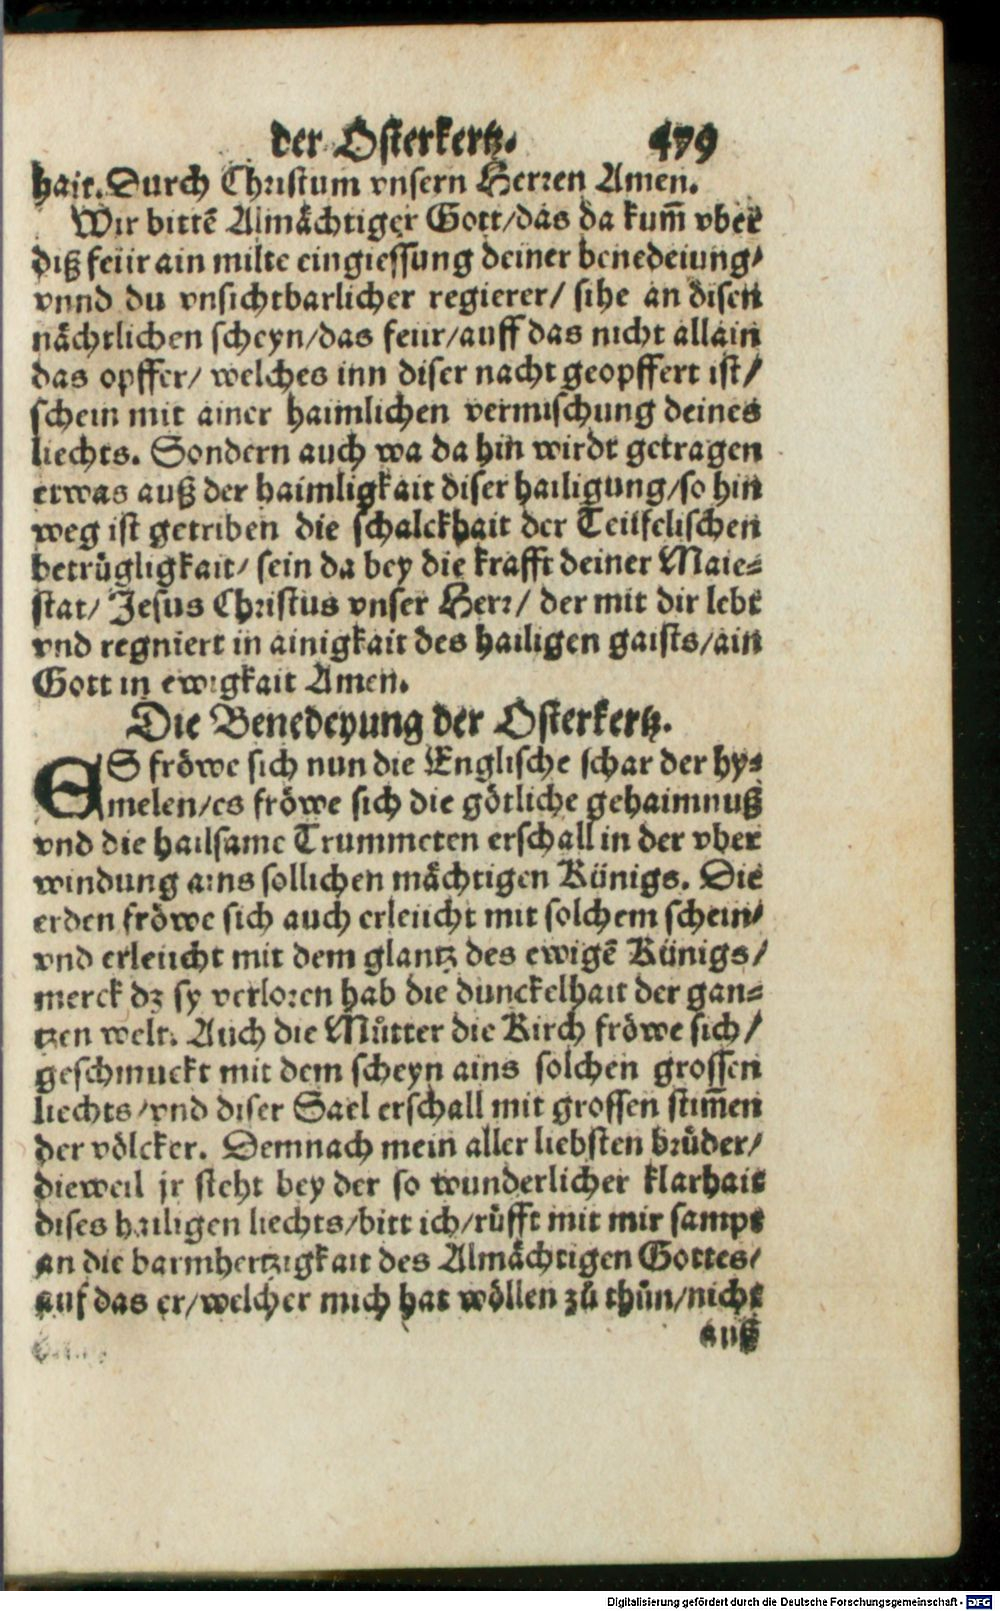 der Osterkertz. 479
hait. Durch Christum vnsern Herren Amen.
Wir bittē Almächtiger Gott/das da kum̄ vber
diß feür ain milte eingiessung deiner benedeiung/
vnnd du vnsichtbarlicher regierer/ sihe an disen
nächtlichen scheyn/das feür/auff das nicht allain
das opffer/ welches inn diser nacht geopffert ist/
schein mit ainer haimlichen vermischung deines
liechts. Sondern auch wa da hin wirdt getragen
etwas auß der haimligkait diser hailigung/so hin
weg ist getriben die schalckhait der Teüfelischen
betrügligkait/ sein da bey die krafft deiner Maie-
stat/ Jesus Christus vnser Herr/ der mit dir lebt
vnd regniert in ainigkait des hailigen gaists/ain
Gott in ewigkait Amen.
Die Benedeyung der Osterkertz.
ES fröwe sich nun die Englische schar der hy-
melen/es fröwe sich die götliche gehaimnuß
vnd die hailsame Trummeten erschall in der vber
windung ains sollichen mächtigen Künigs. Die
erden fröwe sich auch erleücht mit solchem schein/
vnd erleücht mit dem glantz des ewigē Künigs/
merck dz sy verloren hab die dunckelhait der gan-
tzen welt. Auch die Můtter die Kirch fröwe sich/
geschmuckt mit dem scheyn ains solchen grossen
liechts/vnd diser Sael erschall mit grossen stim̄en
der völcker. Demnach mein aller liebsten brüder/
dieweil jr steht bey der so wunderlicher klarhait
dises hailigen liechts/bitt ich/rüfft mit mir sampt
an die barmhertzigkait des Almächtigen Gottes/
auf das er/welcher mich hat wöllen zů thůn/nicht
auß
Digitalisierung gefördert durch die Deutsche Forschungsgemeinschaft - DFG